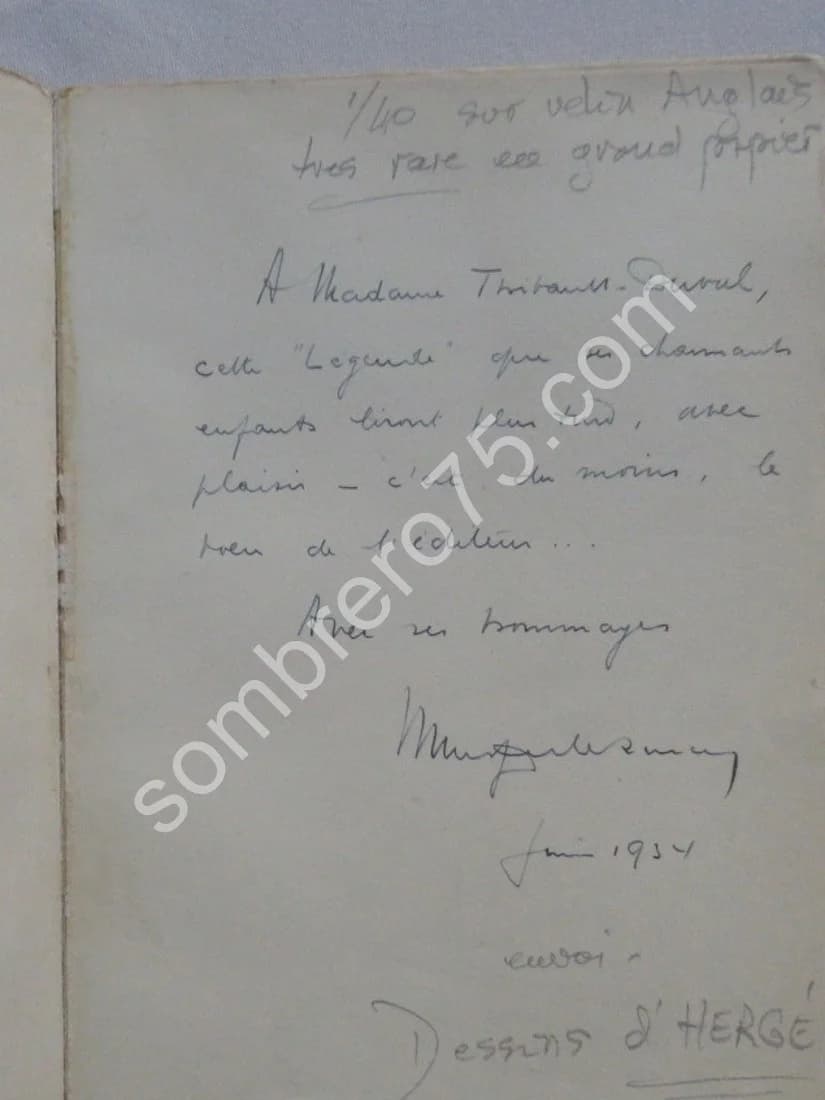 1/40 sur vélin Anglais
très rare en grand papier
A Madame Thibault-Duval,
cette "Légende" que ses charmants
enfants liront plus tard, avec
plaisir — c'est, du moins, le
voeu de l'éditeur...
Avec ses hommages
Juin 1934
envoi.
Dessins d'HERGÉ
sombrero75.com